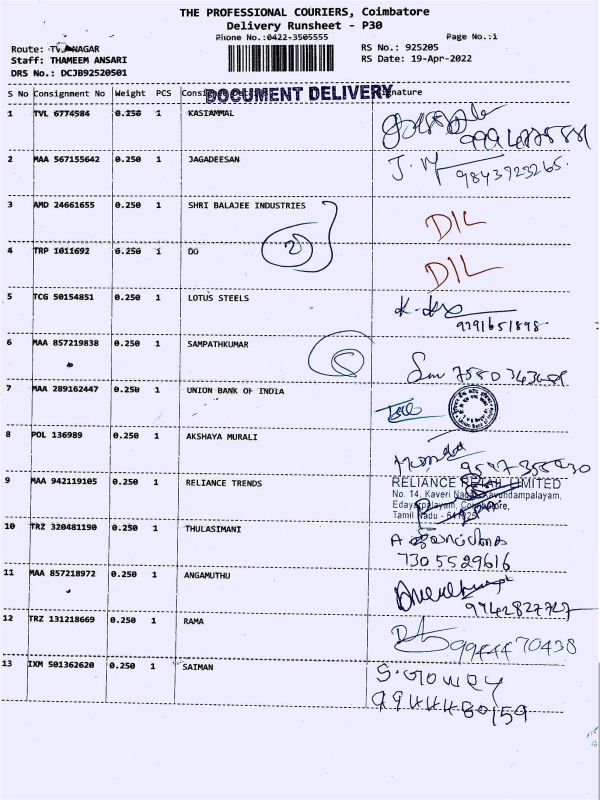 THE PROFESSIONAL COURIERS, Coimbatore
Delivery Runsheet - P30
Phone No.:0422-3505555
Page No.:1
Route: NAGAR
RS No.: 925205
Staff: THAMEEM ANSARI
RS Date: 19-Apr-2022
DRS No.: DCJB92520501
DOCUMENT DELIVERY
S No Consignment No Weight PCS
1 TVL 6774584 0.250 1 KASIAMMAL
2 MAA 567155642 0.250 1 JAGADEESAN J.
9843923265.
3 AMD 24661655 0.250 1 SHRI BALAJEE INDUSTRIES
DIL
2
4 TRP 1011692 0.250 1 DO
DIL
5 TCG 50154851 0.250 1 LOTUS STEELS
9791651898
6 MAA 857219838 0.250 1 SAMPATHKUMAR
7 MAA 289162447 0.250 1 UNION BANK OF INDIA
8 POL 136989 1 AKSHAYA MURALI
9 MAA 942119105 0.250 1 RELIANCE TRENDS
RELIANCE RETAIL LIMITED
No. 14, Kaveri Nagar, Kavundampalayam,
Edayarpalayam, Coimbatore,
Tamil Nadu -
10 TRZ 320481190 0.250 1 THULASIMANI
7305529616
11 MAA 857218972 0.250 1 ANGAMUTHU
9742827727
12 TRZ 131218669 0.250 1 RAMA
9944470438
13 IXM 501362620 0.250 1 SAIMAN
9944480159